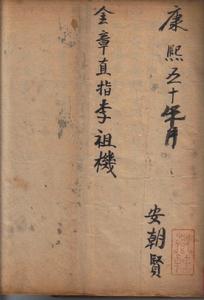 康熙五十年月
金章直指李祖機
安朝賢